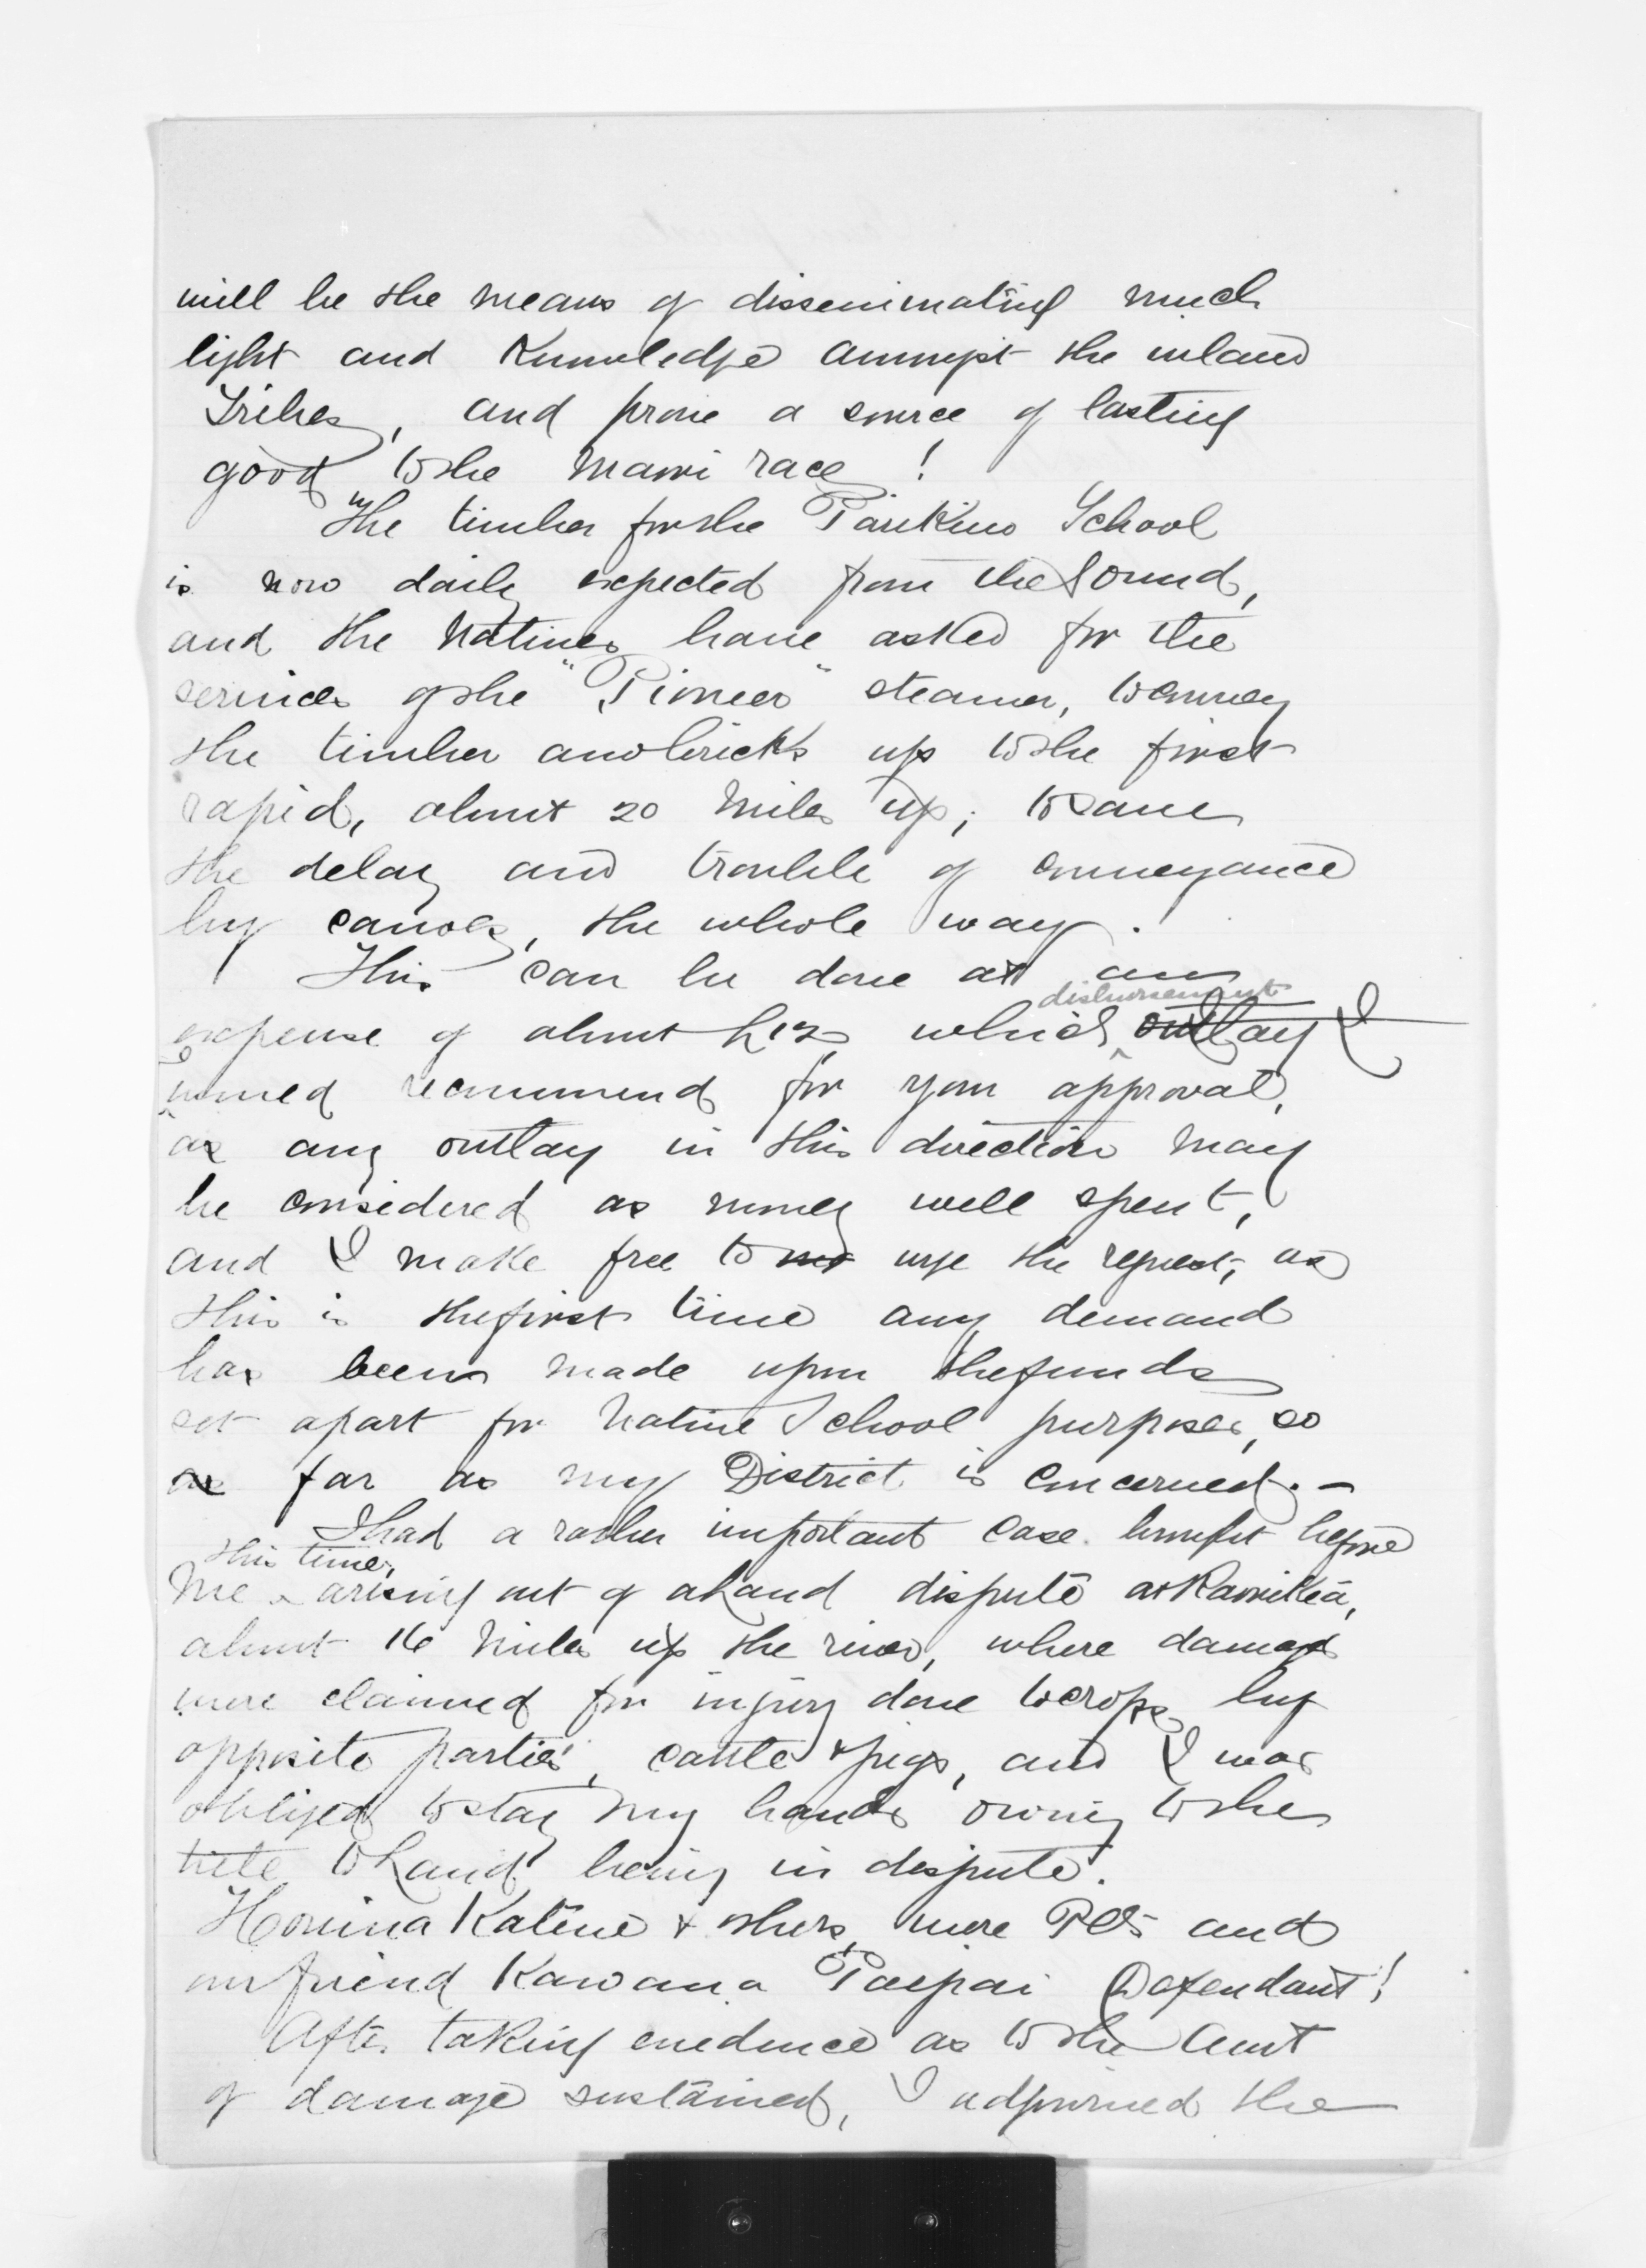 will be the means of disseminating much
light and Knowledge amongst the inland
Tribes, and prove a source of lasting
good to the Maori race!
The timber for the Parikino School
is now daily expected from the Sound,
and the Natives have asked for the
services of the "Pioneer" steamer, to convey
the timber and bricks up to the first
rapid, about 20 miles up; to save
the delay and trouble of conveyance
by canoes, the whole way.
This can be done at an
disbursement
expense of about £12, which outlay I
would recommend for your approval,
as any outlay in this direction may
be considered as money well spent,
and I make free to urge the request, as
this is the first time any demand
has been made upon the funds
set apart for Native School purposes, so
as far as my District is concerned. -
I had a rather important case brought before
this time,
me arising out of a Land dispute at Kaurikea,
about 16 miles up the river, where damages
were claimed for injury done to crops by
opposite parties', cattle & pigs, and I was
obliged to stay my hands owing to the
title to Land being in dispute.
Honina Katene & others were and
our friend Kawana Paipai Defendant!
After taking evidence as to the Amt
of damage sustained, I adjourned the